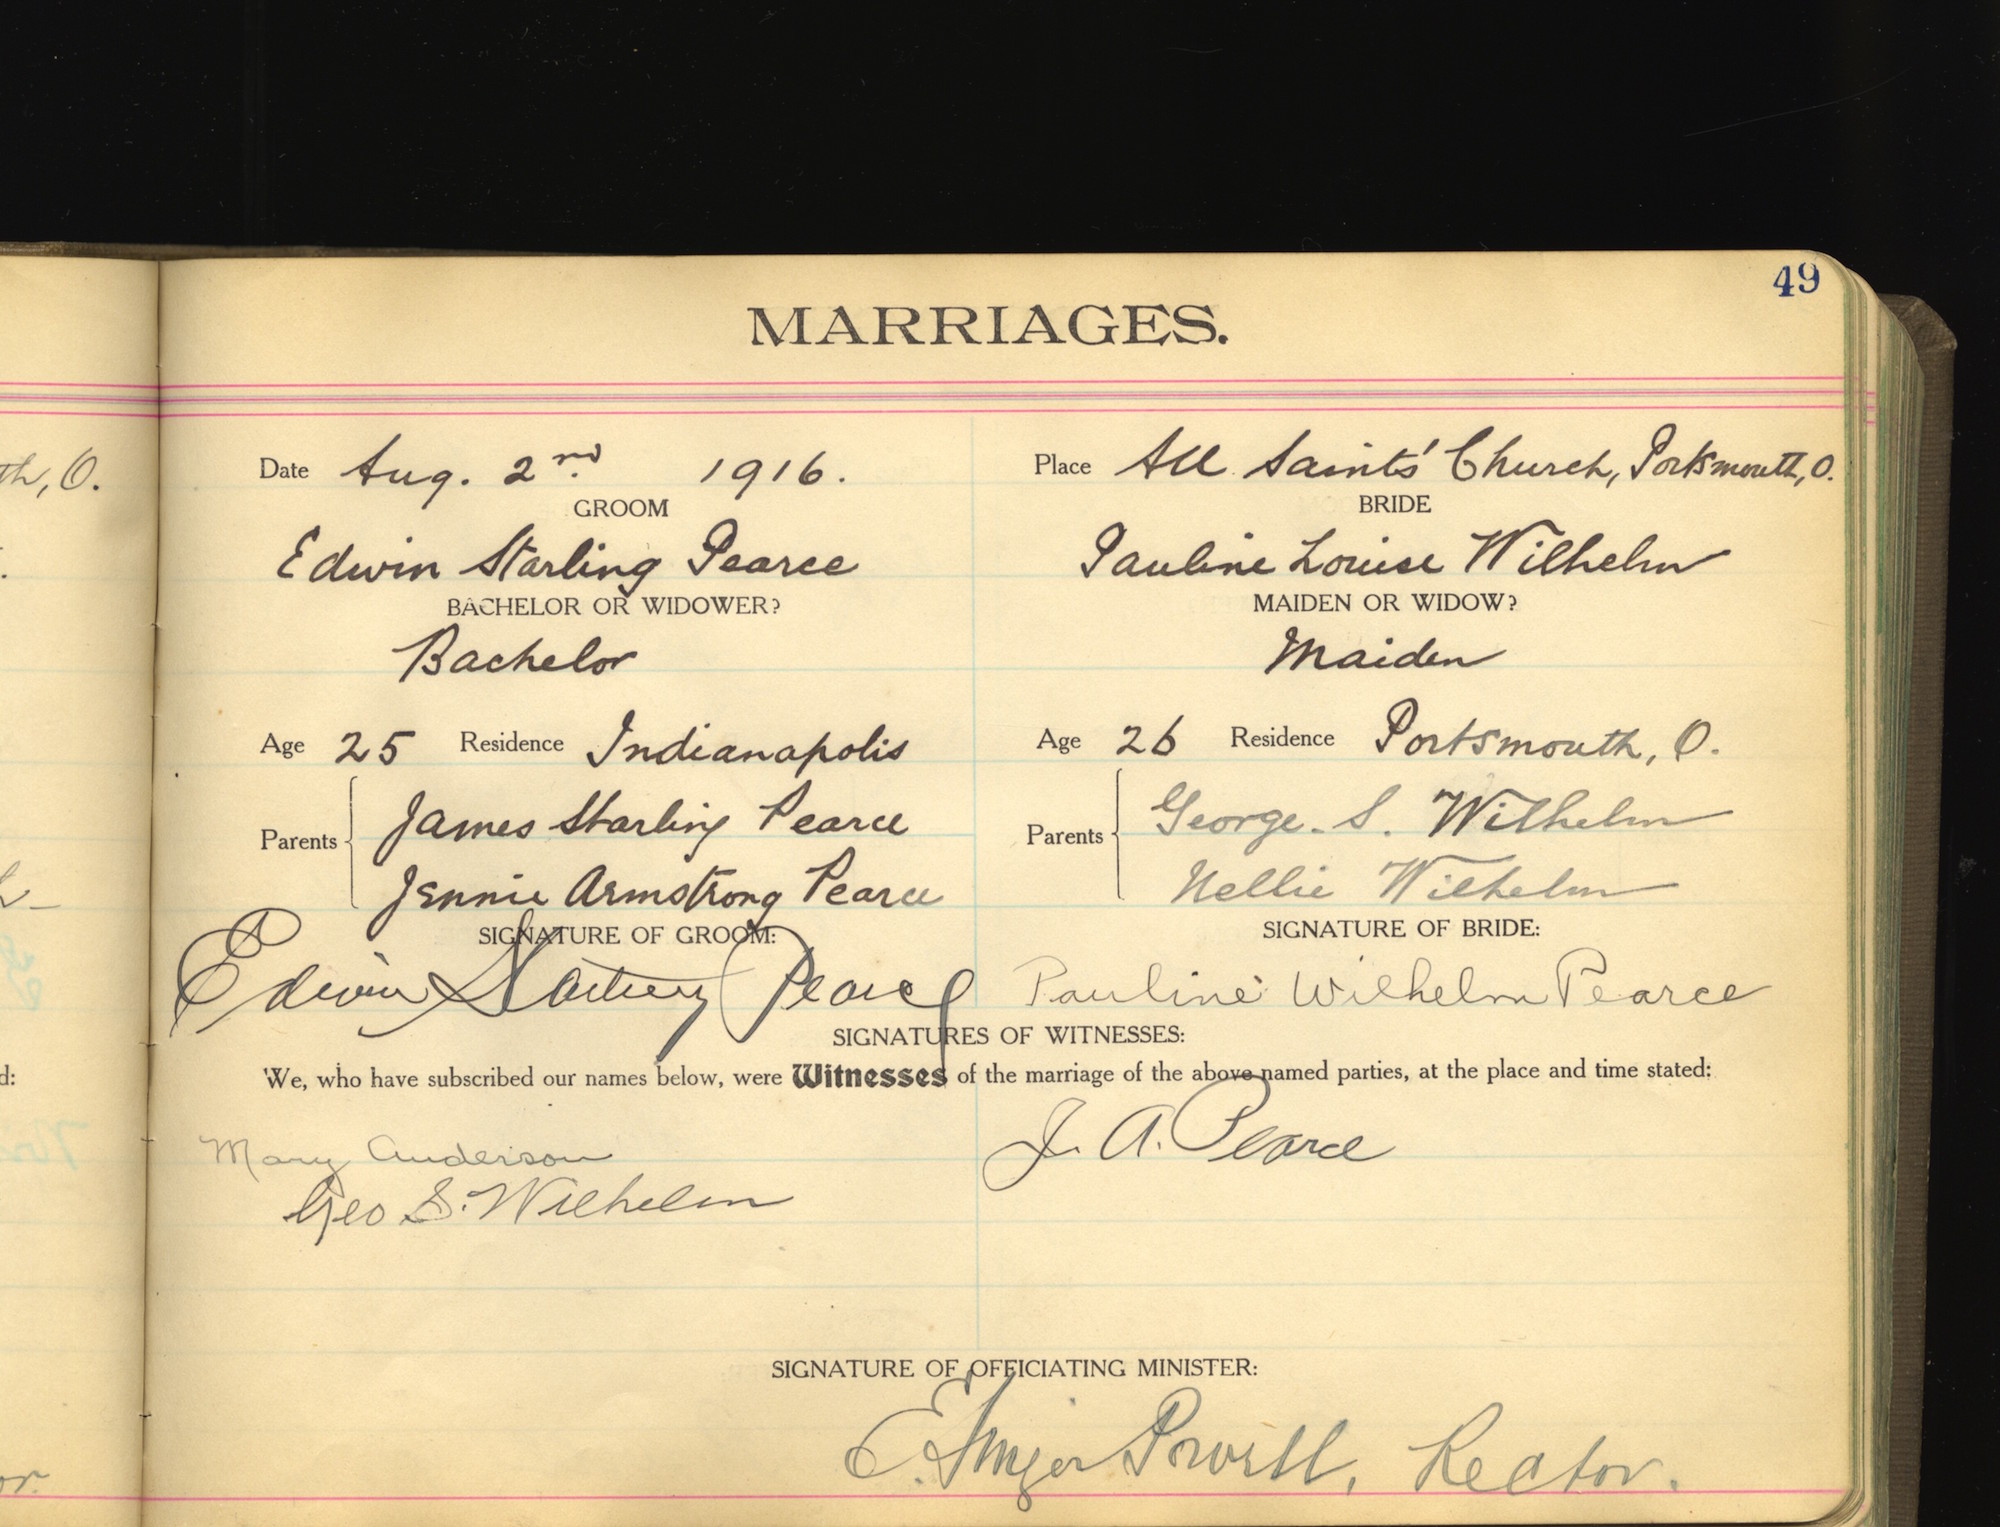 49
MARRIAGES.
th, O.
Date Aug. 2nd 1916. Place All Saints' Church, Portsmouth, O.
GROOM BRIDE
Edwin Starling Pearce Pauline Louise Wilhelm
BACHELOR OR WIDOWER? MAIDEN OR WIDOW?
Bachelor Maiden
Age 25 Residence Indianapolis Age 26 Residence Portsmouth, O.
Parents James Starling Pearce Parents George. S. Wilhelm
Jennie Armstrong Pearce Nellie Wilhelm
SIGNATURE OF GROOM: SIGNATURE OF BRIDE:
Edwin Starling Pearce Pauline Wilhelm Pearce
SIGNATURES OF WITNESSES:
d: We, who have subscribed our names below, were Witnesses of the marriage of the above named parties, at the place and time stated:
Mary Anderson J. A. Pearce
Geo S. Wilhelm
SIGNATURE OF OFFICIATING MINISTER:
E. Ainger Powell, Rector.
or.